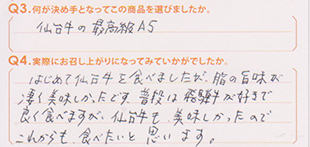 Q3.何が決め手となってこの商品を選びましたか。
仙台牛の最高級A5
Q4.実際にお召し上がりになってみていかがでしたか。
はじめて仙台牛を食べましたが、脂の旨味が
凄く美味しかったです。普段は飛騨牛が好きで
良く食べますが、仙台牛も美味しかったので
これからも、食べたいと思います。